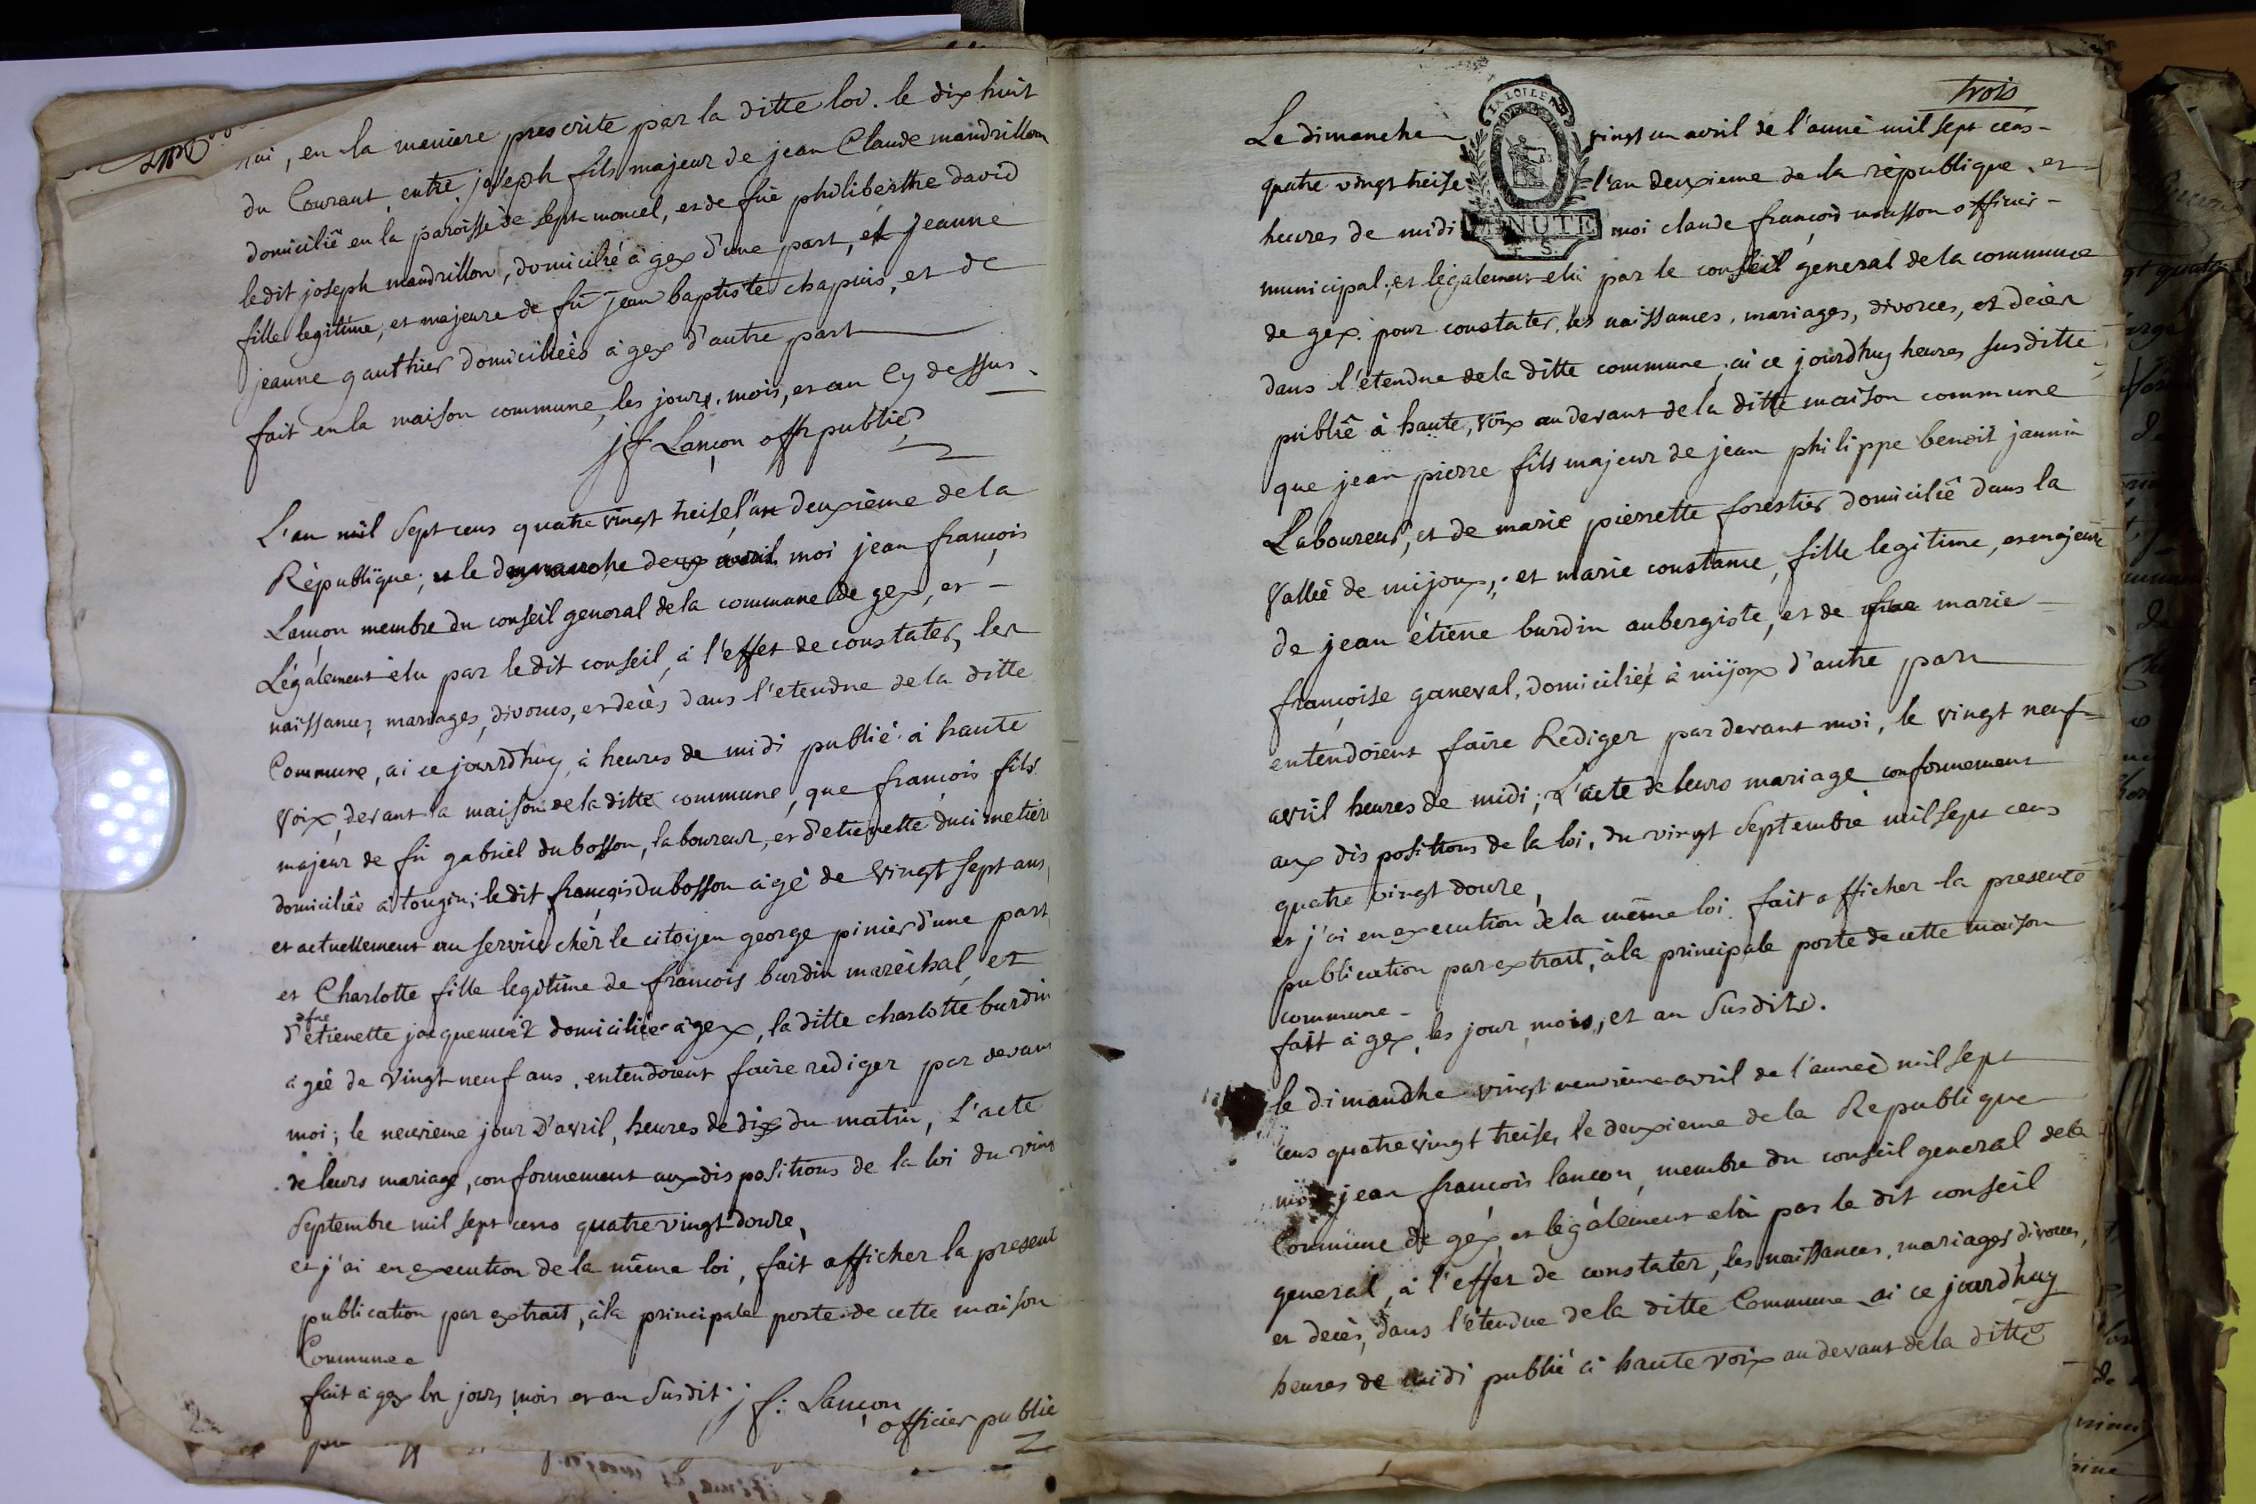 mai, en la maniere prescrite par la ditte loi. le dix huit
du Courant, entre joseph fils majeur de jean Claude mandrillon
domicilié en la paroisse de sept-moncel, et de fuë philiberthe david
ledit joseph mandrillon, domicilié à gex d'une part, et jeanne
fille legitime, et majeure de fû jean baptiste chapuis, et de
jeanne gauthier domiciliées à gex d'autre part
fait en la maison commune, les jours, mois, et an Cy dessus.
jf Lançon offr public
L'an mil sept cens quatre vingt treise l'an deuxième de la
Rèpublique; et le dimanche deux avril moi jean françois
Lançon membre du conseil general de la commune de gex, et
Légalement èlu par le dit conseil, à l'effet de constater, les
naissances, mariages, divorces, et decès dans l'etendue de la ditte
Commune, ai ce jourd'huy, à heures de midi publié à haute
voix, devant la maison de la ditte commune, que françois fils
majeur de fû gabriel dubosson, laboureur, et d'etienette ducimetiere
domiciliée à tougin; le dit françois dubosson âgé de vingt sept ans
et actuellement au service chèr le citoijen george pinier d'une part
et Charlotte fille legitime de francois burdin marèchal, et
defue
d'etienette jacquemier domiciliée à gex, la ditte charlotte burdin
ageè de vingt neuf ans, entendoient faire rediger par devant
moi; le neuvieme jour d'avril, heures de dix du matin, L'acte
de leurs mariage, conformement aux dispositions de la loi du vingt
Septembre mil sept cens quatre vingt douze,
et j'ai en execution de la même loi, fait afficher la present
publication par extrait, à la principale porte de cette maison
Commune
fait à gex les jours mois et an susdit. j f: Lançon
officier public
trois
Le dimanche vingt un avril de l'anné mil sept cens
quatre vingt treise l'an deuxieme de la rèpublique, et
heures de midi moi claude francois nousson officier
LA LOI LE R
MINUTE
S.
municipal, et lègalement elu par le conseil general de la commune
de gex pour constater, les naissances, mariages, divorces, et deces
dans l'etendue de la ditte commune, ai ce jourdhuy heures susditte
publié à haute, voix au devant de la ditte maison commune
que jean pierre fils majeur de jean philippe benoit jannin
Laboureur, et de marie pierrette forestier domicilié dans la
Vallée de mijoux; et marie constance, fille legitime, et majeure
de jean étiene burdin aubergiste, et de fue marie
françoise ganeval, domiciliéé à mijoux d'autre part
entendoient faire Rediger par devant moi, le vingt neuf
avril heures de midi; L'acte de leurs mariage conformement
aux dispositions de la loi, du vingt septembre mil sept cens
quatre vingt douze,
et j'ai en execution de la même loi. fait afficher la presente
publication par extrait, à la principale porte de cette maison
commune
fait à gex, les jour, mois, et an susdits.
le dimandhe vingt neuvieme avril de l'anneè mil sept
cens quatre vingt treise, le deuxieme de la Republique
moi jean francois lancon, membre du conseil general de la
Commune de gex et legálement elu par le dit conseil
general, à l'effet de constater, les naissances, mariages divorces,
et decès, dans l'étendue de la ditte Commune ai ce jourd'huy
heures de midi publié à haute voix au devant de la ditte